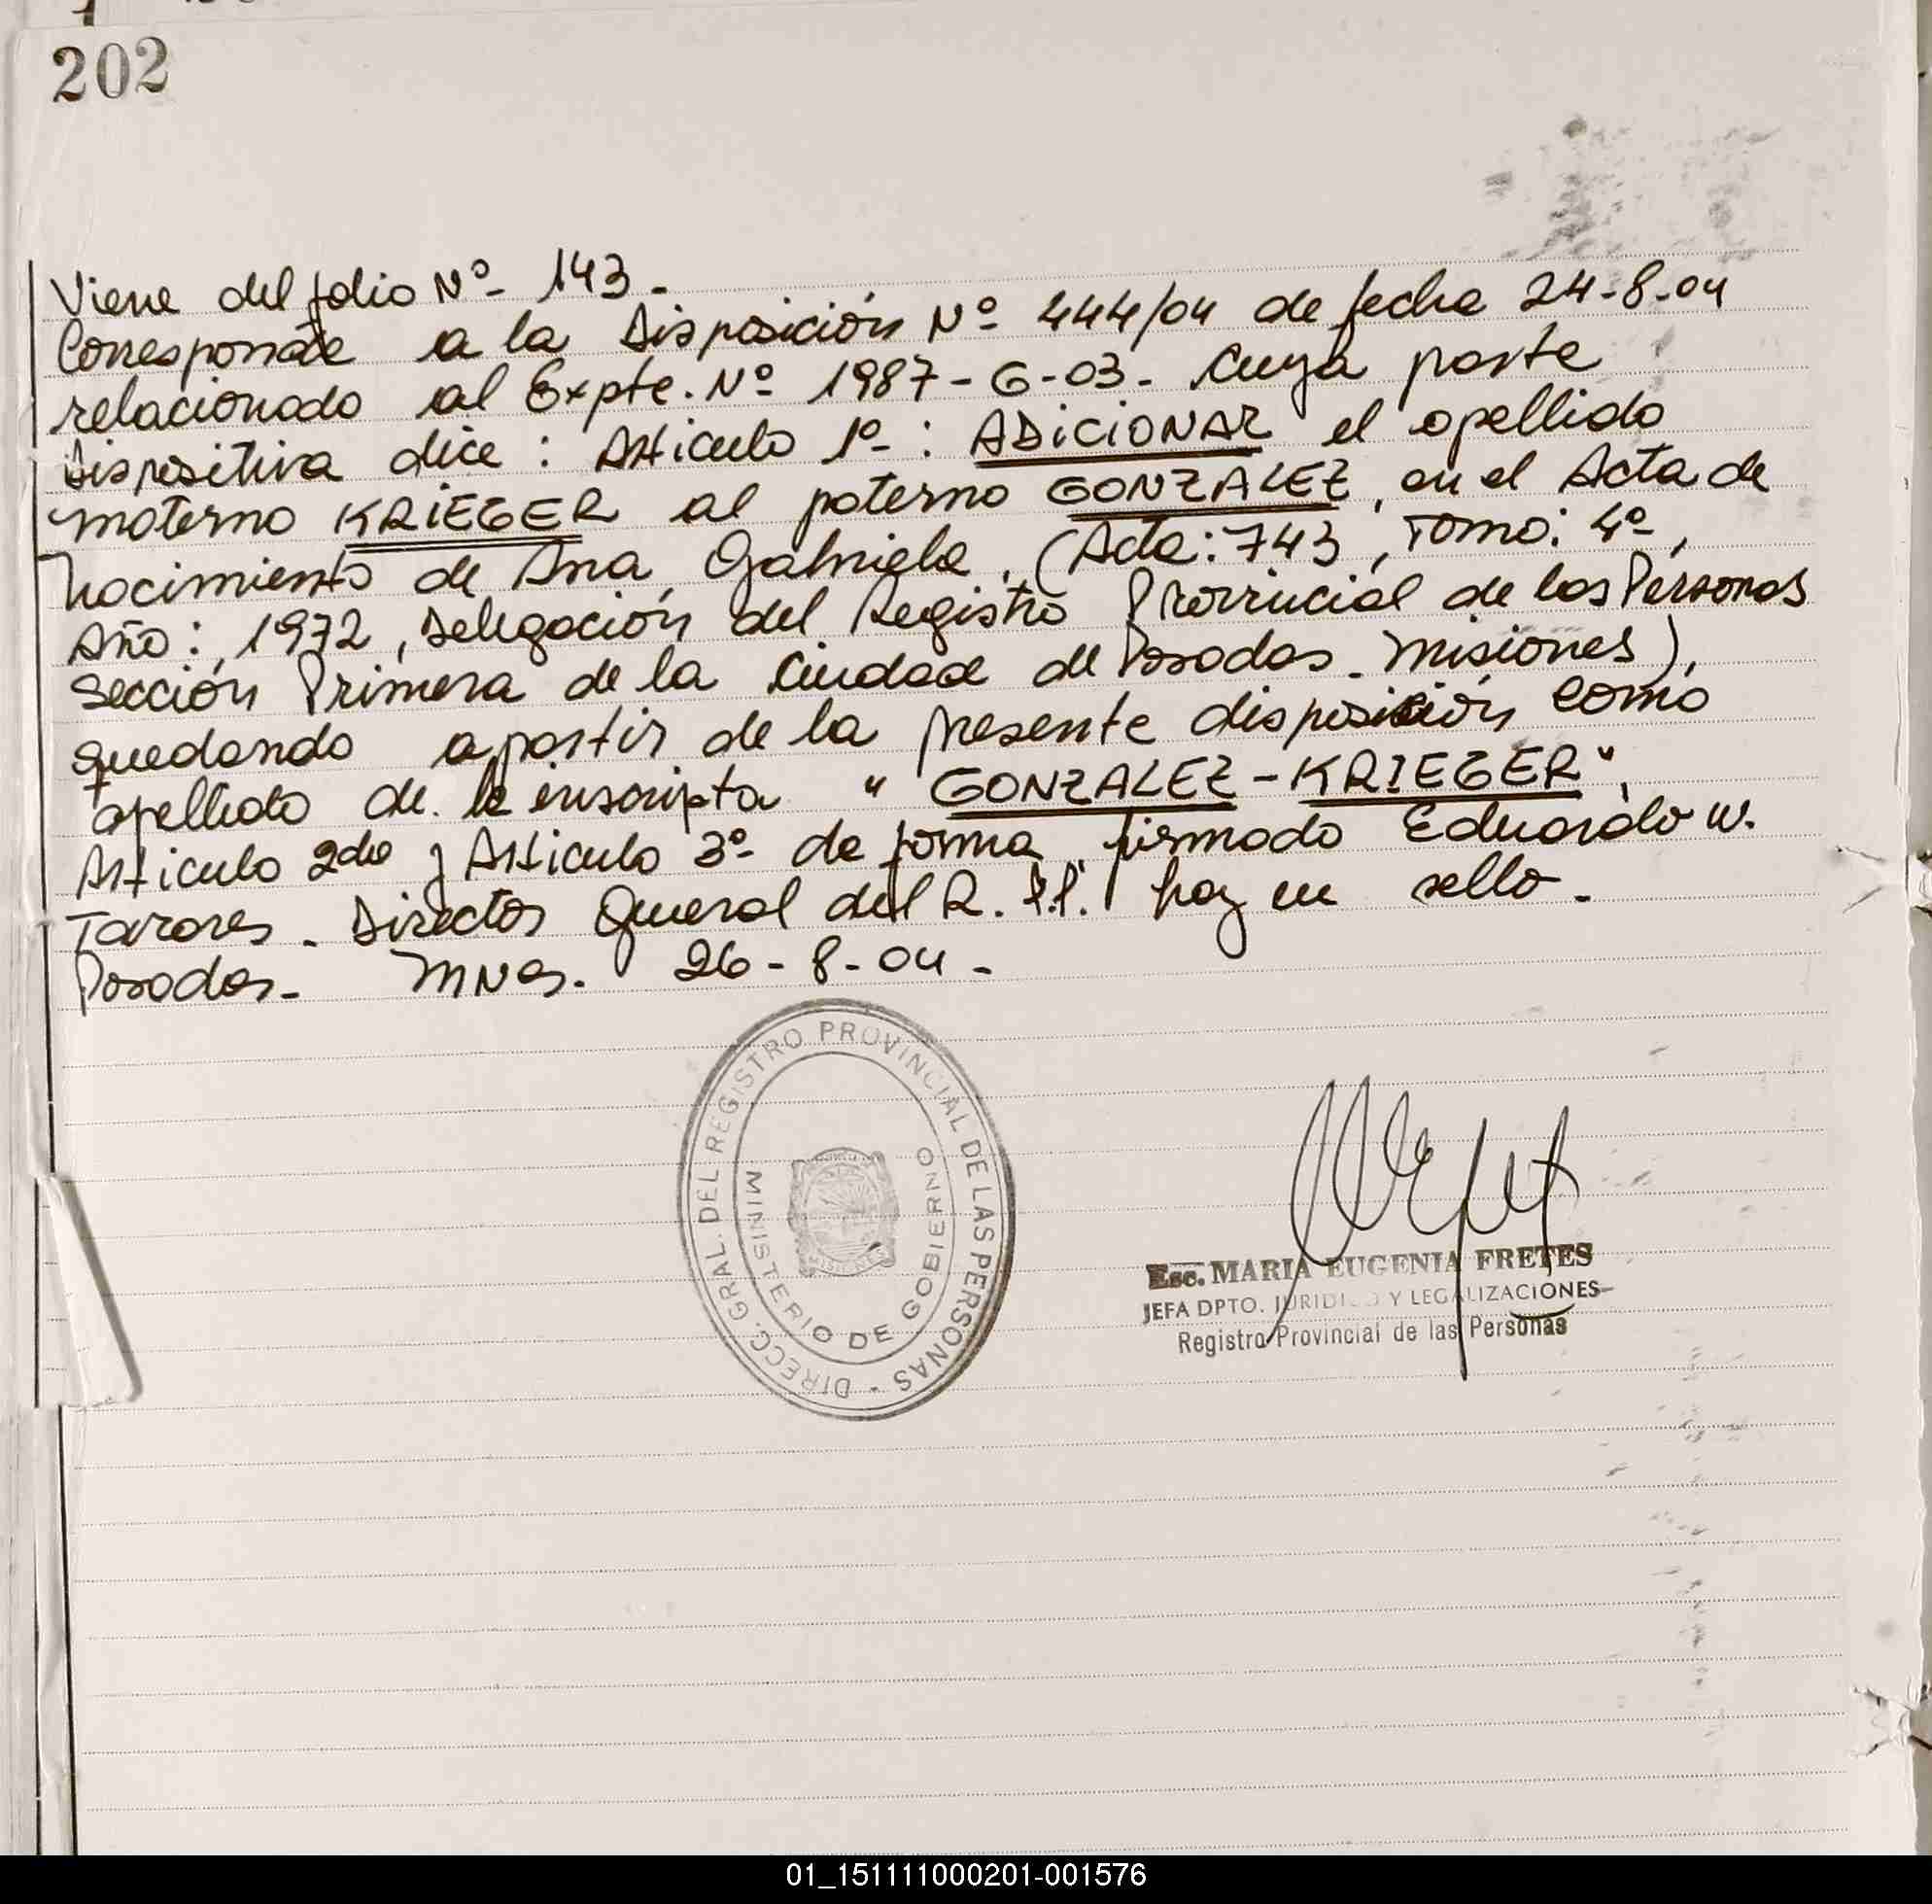 202
Viene del folio Nº 143.
Corresponde a la Disposición Nº 444/04 de fecha 24-8-04
relacionado al Expte. Nº 1987-G-03. Cuya parte
Dispositiva dice: Articulo 1º: ADICIONAR el apellido
materno KRIEGER al paterno GONZALEZ, en el Acta de
Nacimiento de Ana Gabriela, (Acta: 743, Tomo: 4º,
Año: 1972, Delegación del Registro Provincial de las Personas
Sección Primera de la Ciudad de Posadas. Misiones),
quedando a partir de la presente disposición como
apellido de la inscripta "GONZALEZ-KRIEGER",
Articulo 2do y Articulo 3º de forma firmado Eduardo W.
Tavares. Director General del R.P.P. hay un sello.
Posadas. Mnes. 26-8-04.
DIRECC. GRAL. DEL REGISTRO PROVINCIAL DE LAS PERSONAS -
MINISTERIO DE GOBIERNO
MISIONES
Esc. MARIA EUGENIA FRETES
JEFA DPTO. JURIDICO Y LEGALIZACIONES
Registro Provincial de las Personas
01_151111000201-001576